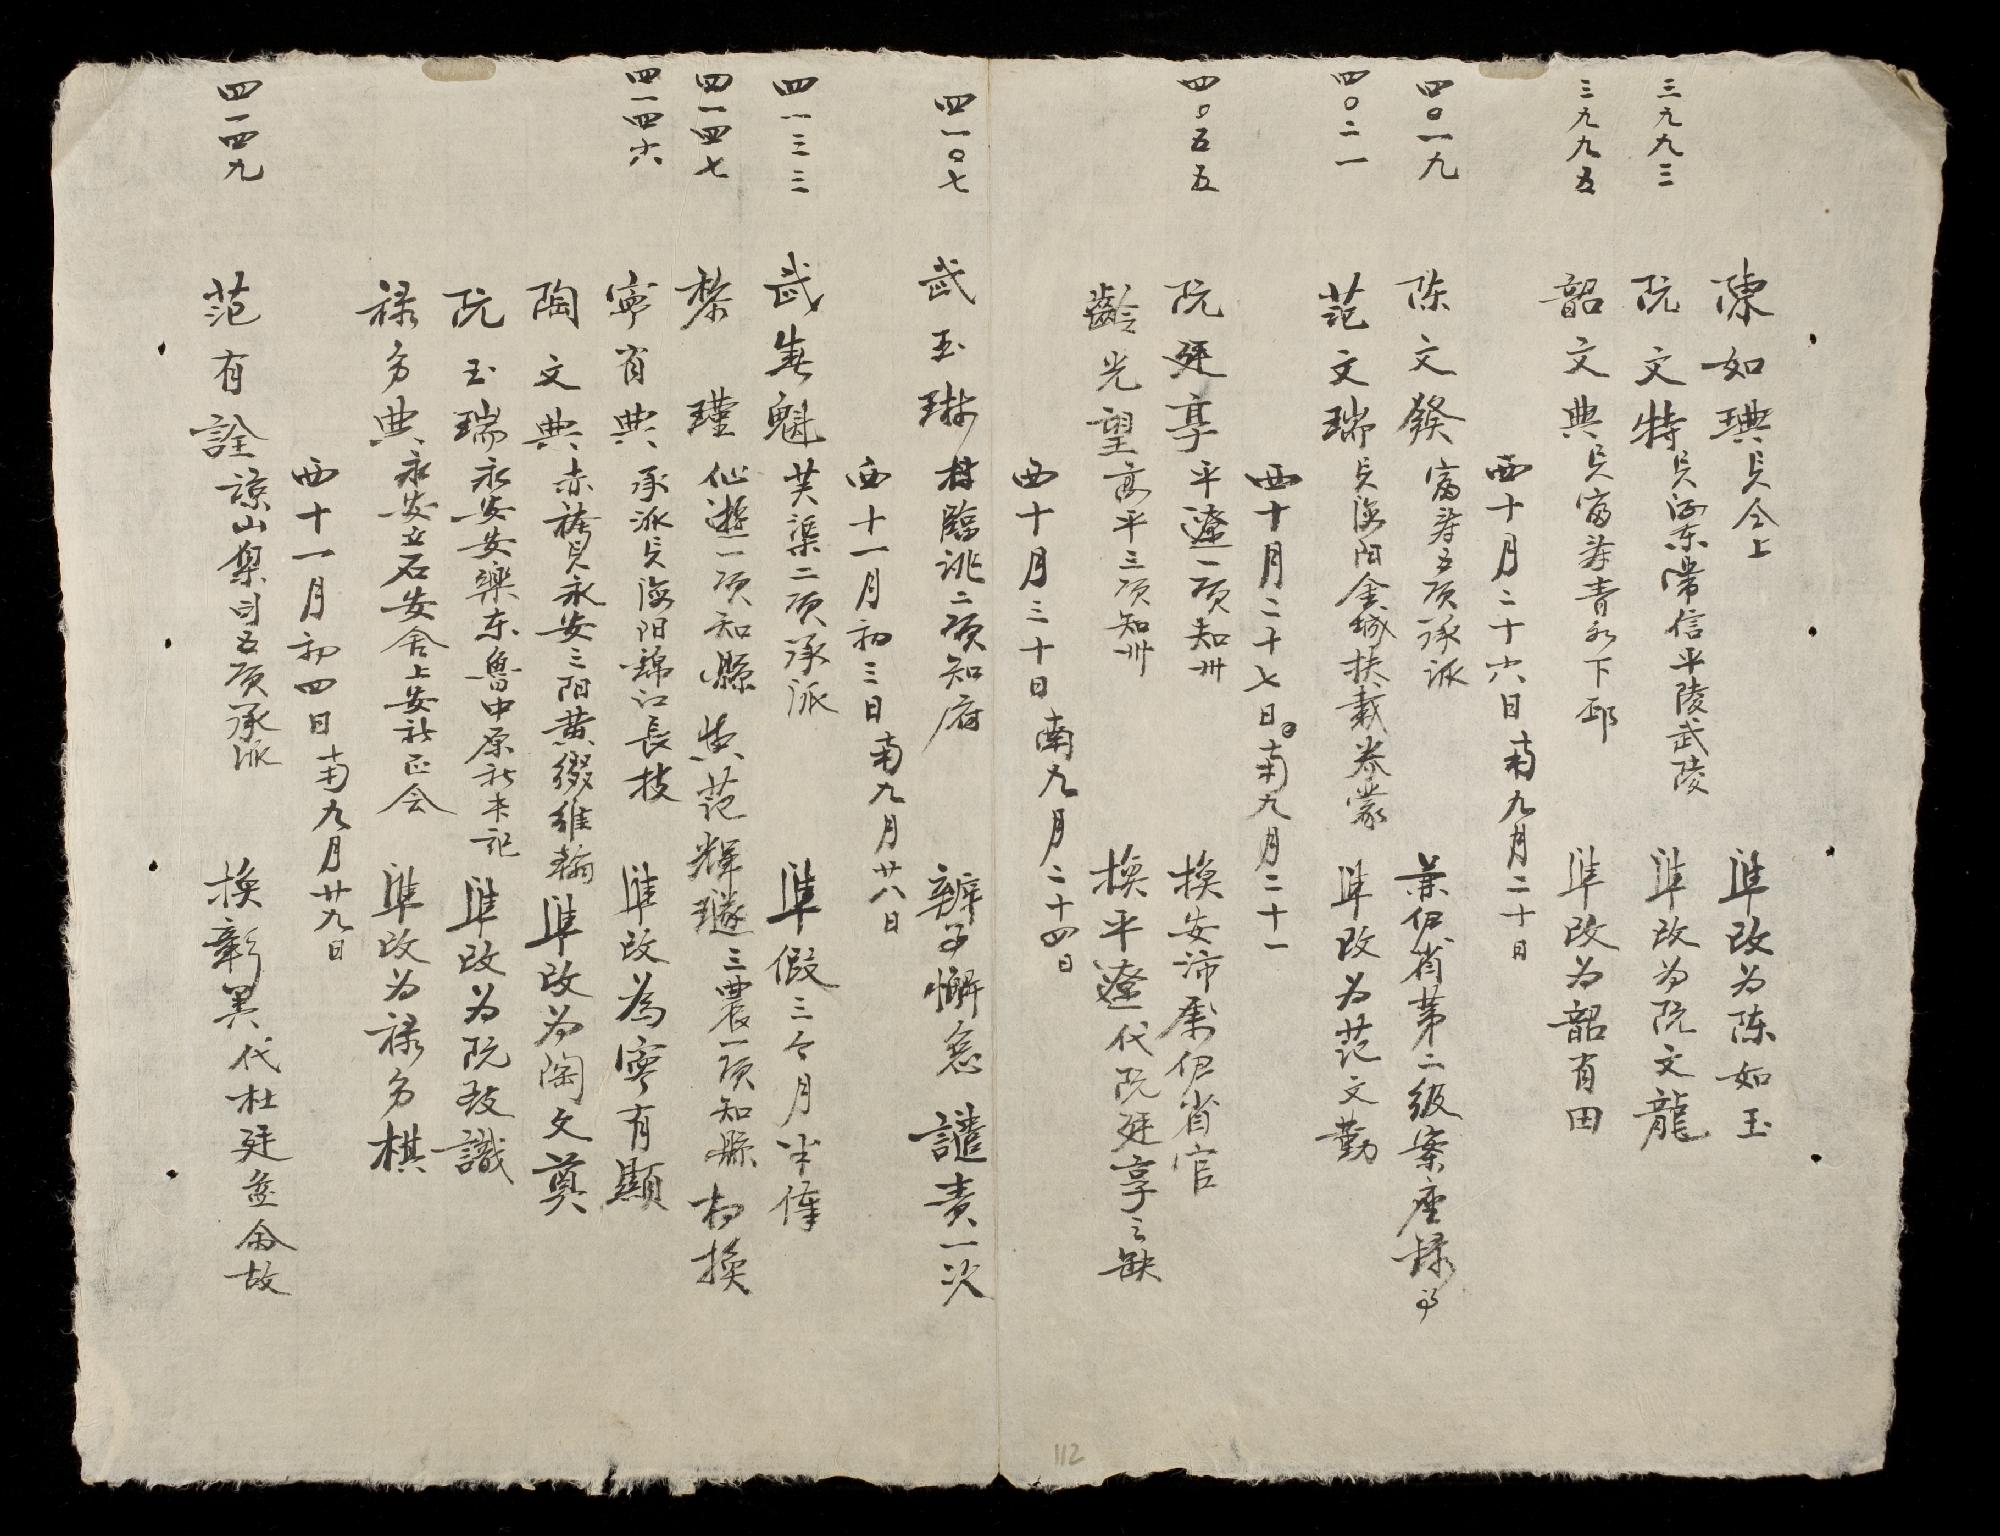 陳如琠 貟仝上 準改为陈如玉
三九九三 阮文特 貟河东常信平陵武陵 準改为阮文龍
三九九五 韶文典 貟富寿青永下邳 準改为韶有田
西十月二十六日南九月二十日
四〇一九 陈文發 富寿五項承派 葉伊省第二級案座錄事
四〇二一 范文瑞 貟海阳金城扶戴 準改为范文勤
西十月二十七日南九月二十一
四〇五五 阮廷享 平遼一項知州 換安沛 伊省官
齡光望 高平三項知州 換平遼代阮廷享之缺
西十月三十日南九月二十四日
四一〇七 武玉琳 臨洮二項知府 辦事懈怠 譴責一次
西十一月初三日南九月廿八日
四一三三 武春魁 芙渠二項承派 準假三个月半俸
四一四七 黎瑾 仙遊一項知縣 范輝璲三農一項知縣 相換
四一四六 寧有典 承派貟海阳錦江長枝 準改為寧有顯
陶文典 赤袴貟永安三阳黄維翰 準改为陶文奠
阮玉瑞 永安安樂东魯中原社 準改为阮致識
禄多典 永安立石安舍上安社正会 準改为禄多棋
西十一月初四日南九月廿九日
四一四九 范有詮 諒山梟司五項承派 換彰異代杜廷盖 故
112